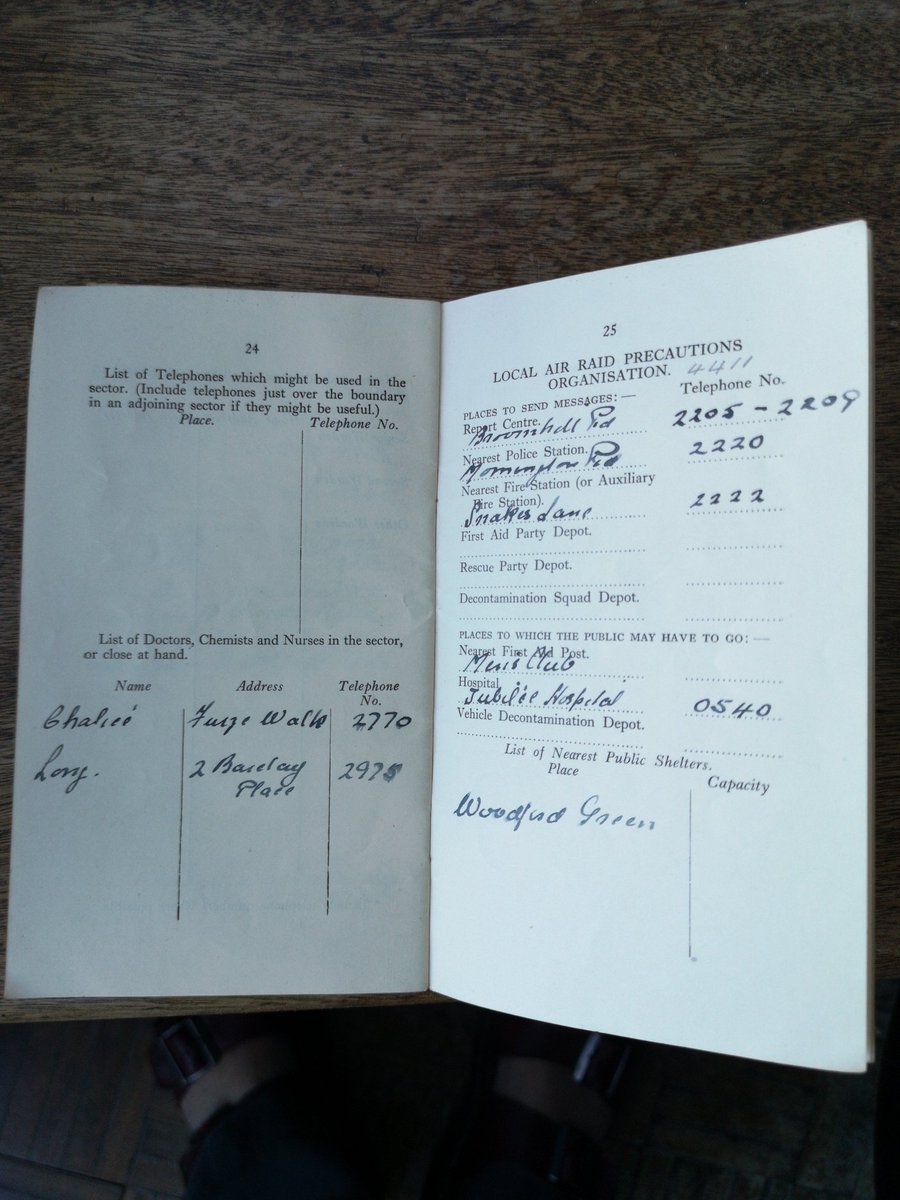 24
List of Telephones which might be used in the
sector. (Include telephones just over the boundary
in an adjoining sector if they might be useful.)
Place. Telephone No.
List of Doctors, Chemists and Nurses in the sector,
or close at hand.
Name Address Telephone
No.
Furze Walk 2770
Long. 2 Barclay 2975
Place
25
LOCAL AIR RAID PRECAUTIONS
ORGANISATION. 4411
Telephone No.
PLACES TO SEND MESSAGES:—
Report Centre.
Broomhill Rd 2205 - 2209
Nearest Police Station.
Mornington Rd 2220
Nearest Fire Station (or Auxiliary
Fire Station).
Snakes Lane 2222
First Aid Party Depot.
Rescue Party Depot.
Decontamination Squad Depot.
PLACES TO WHICH THE PUBLIC MAY HAVE TO GO:—
Nearest First Aid Post.
Men's Club
Hospital
Jubilee Hospital 0540
Vehicle Decontamination Depot.
List of Nearest Public Shelters.
Place Capacity
Woodford Green